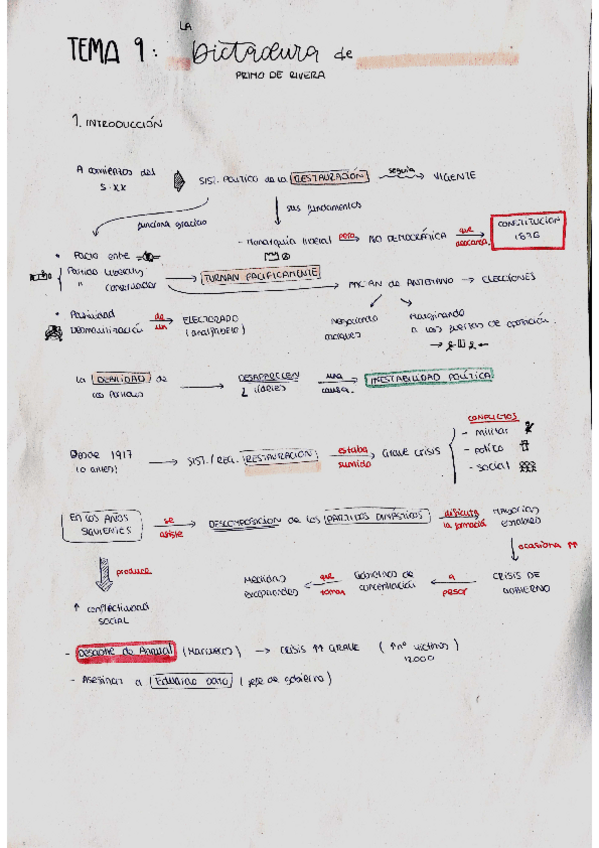 LA
TEMA 9: Dictadura de
PRIMO DE RIVERA
1. INTRODUCCIÓN
A comienzos del S.XX SIST. POLÍTICO de la RESTAURACIÓN seguía VIGENTE
funciona gracias sus fundamentos
- Monarquía liberal pero NO DEMOCRÁTICA que CONSTITUCIÓN 1876
• Pacto entre
Partido liberal y " conservador TURNAN PACÍFICAMENTE ELECCIONES
• Pasividad Desmovilización de un ELECTORADO (analfabeto) Negociando Marginando a las fuerzas de oposición
La DEBILIDAD de los partidos DESAPARICIÓN 2 líderes una causa INESTABILIDAD POLÍTICA
CONFLICTOS
Desde 1917 SIST./REG. RESTAURACIÓN estaba sumido GRAVE CRISIS - militar
- político
- social
EN LOS AÑOS SIGUIENTES se asiste DESCOMPOSICIÓN de los PARTIDOS DINÁSTICOS dificulta la formación Mayorías estables
ocasiona ↑↑
produce Medidas excepcionales que toman Gobiernos de concentración a pesar CRISIS DE GOBIERNO
↑ conflictividad SOCIAL
- Desastre de Annual (Marruecos) → CRISIS ↑↑ GRAVE (↑ nº víctimas)
12.000
- Asesinan a Eduardo Dato (jefe de gobierno)